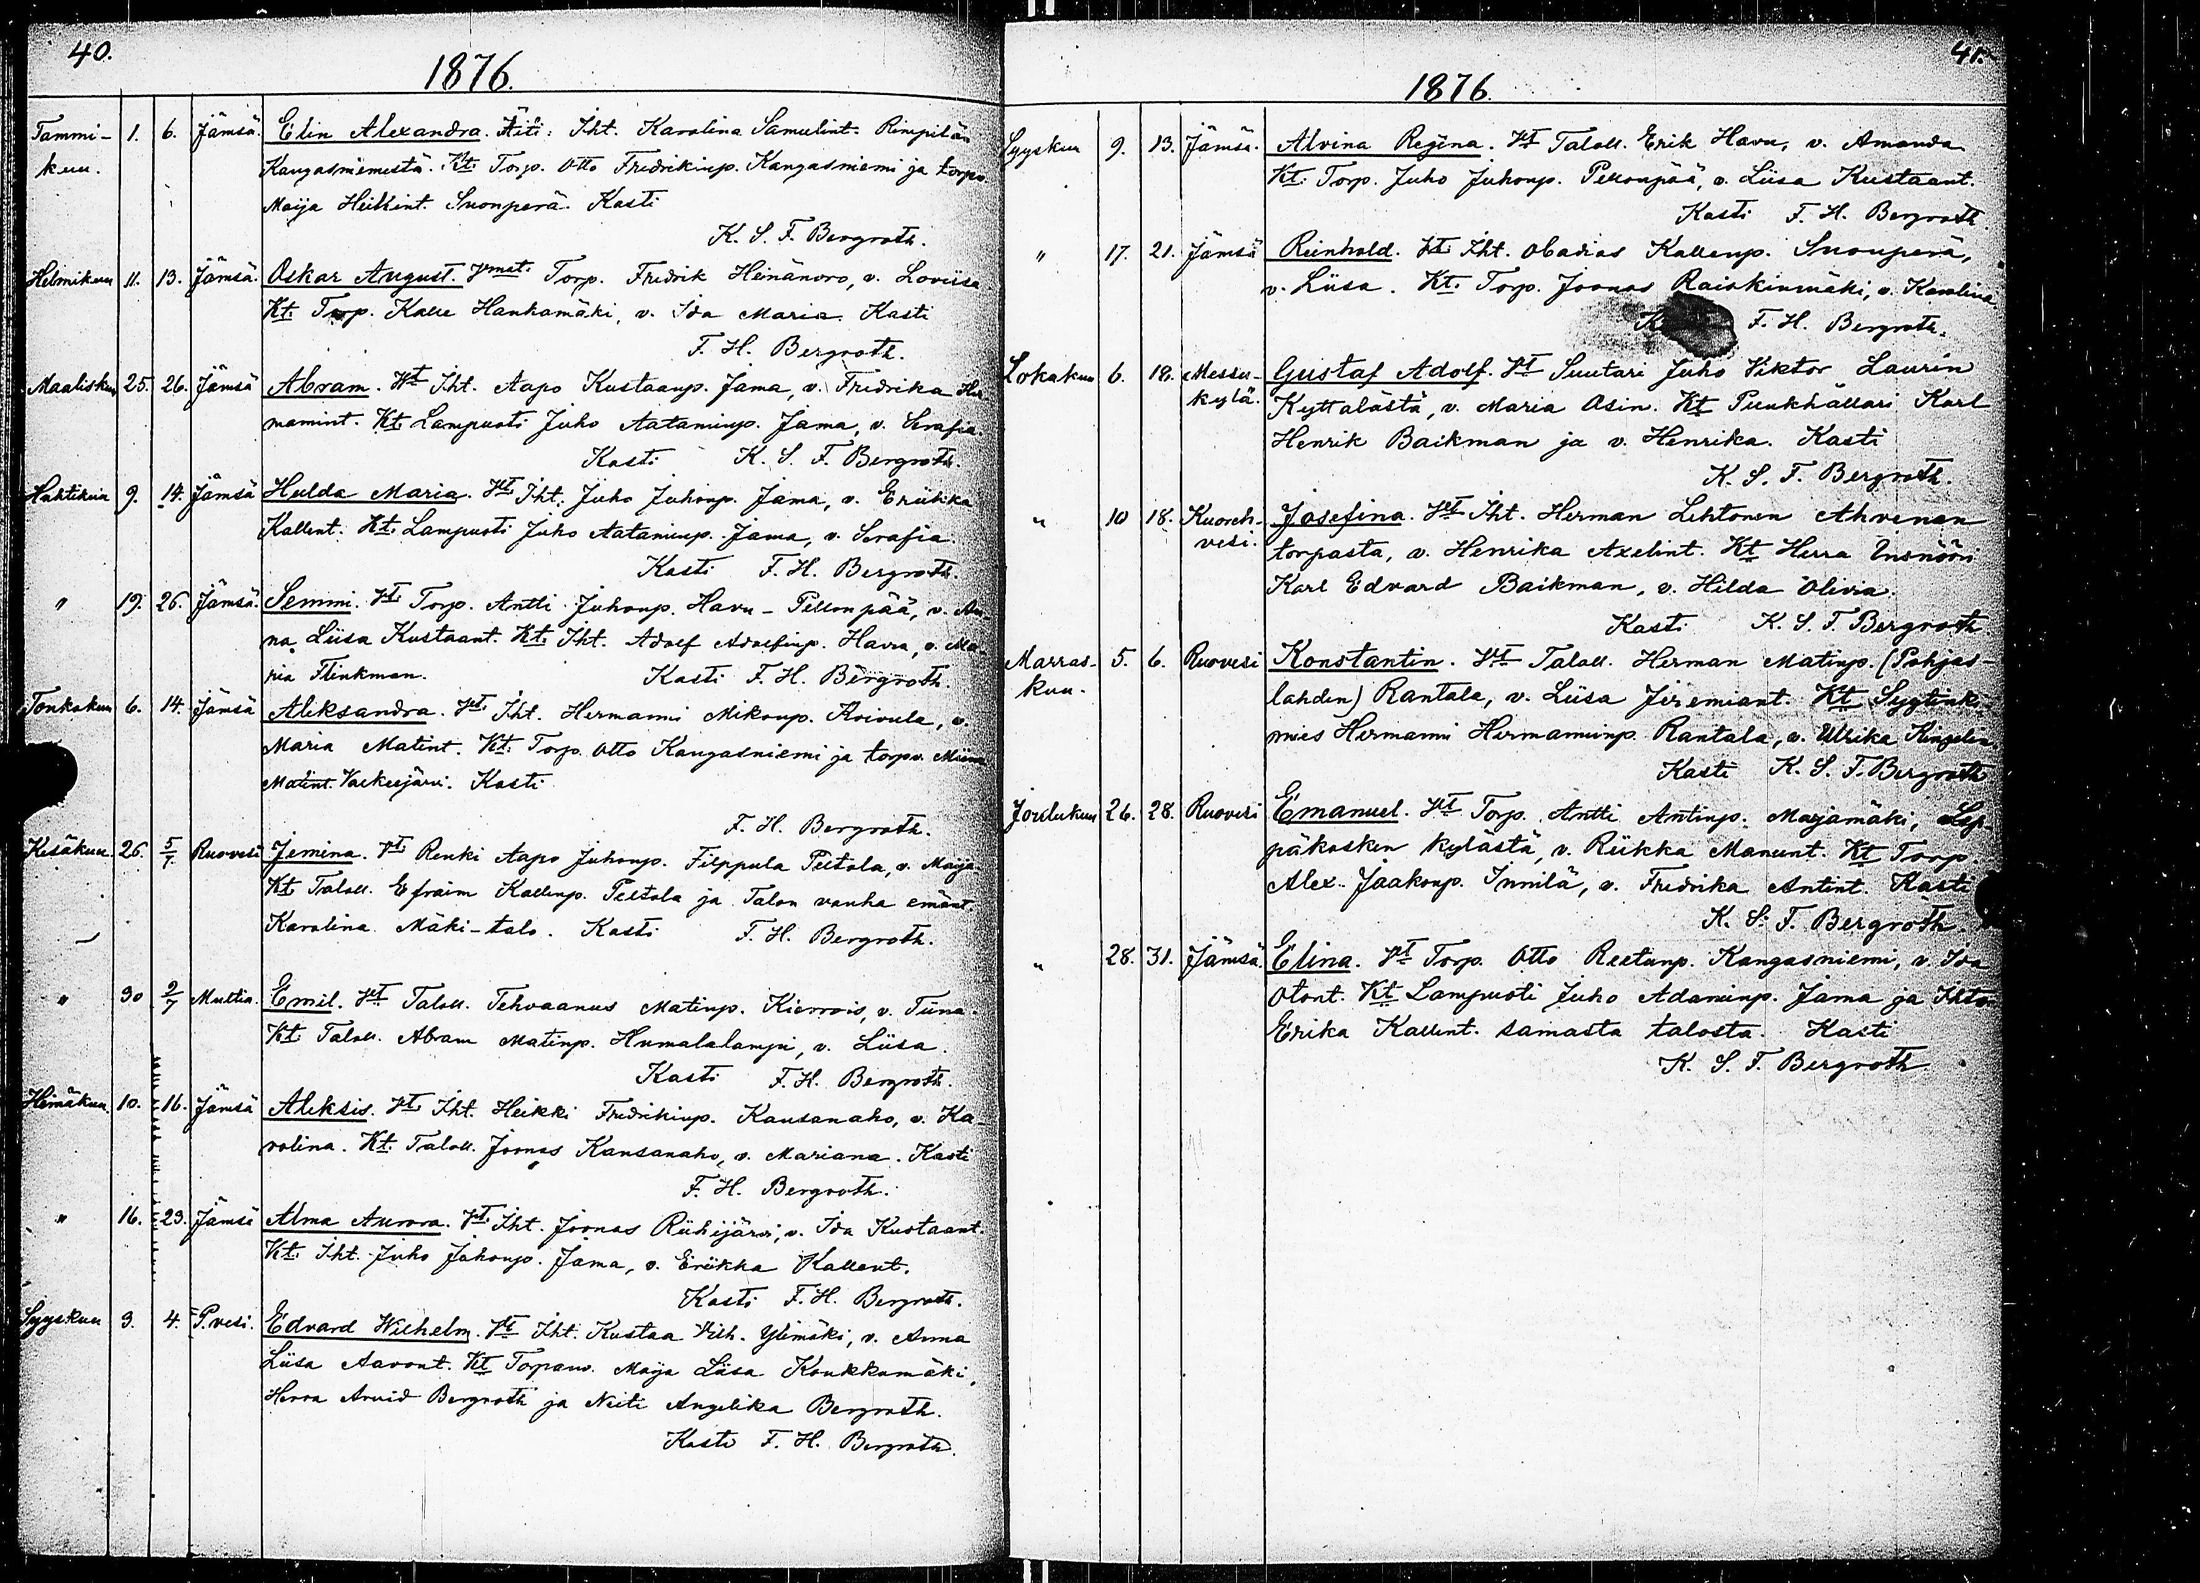 40.
1876.
Tammi- 1. 6. Jämsä. Elin Alexandra. Äiti: Iht. Karolina Samulint. Rimpilän
kuu. Kangasniemestä. Kt. Torp. Otto Fredrikinp. Kangasniemi ja torpv.
Maija Heikkint. Suonperä. Kasti
K. S. F. Bergroth.
Helmikuu 11. 13. Jämsä. Oskar August. Vmat. Torp. Fredrik Heinänoro, v. Loviisa
Kt. Torp. Kalle Hankamäki, v. Ida Maria. Kasti
F. H. Bergroth.
Maaliskuu 25. 26. Jämsä Abram. Vt. Iht. Aapo Kustaanp. Jama, v. Fredrika Her-
mamint. Kt. Lampuoti Juho Aataminp. Jama, v. Serafia.
Kasti K. S. F. Bergroth.
Huhtikuu 9. 14. Jämsä Hulda Maria. Vt. Iht. Juho Juhonp. Jama, v. Eriikka
Kallent. Kt. Lampuoti Juho Aataminp. Jama, v. Serafia.
Kasti F. H. Bergroth.
" 19. 26. Jämsä. Semmi. Vt. Torp. Antti Juhonp. Havu-Pellonpää, v. An-
na Liisa Kustaant. Kt. Iht. Adolf Adolfinp. Havu, v. Ma-
ria Flinkman. Kasti F. H. Bergroth.
Toukokuu 6. 14. Jämsä Aleksandra. Vt. Iht. Hermanni Mikonp. Koivula, v.
Maria Matint. Kt. Torp. Otto Kangasniemi ja torpv. Miina
Matint. Valkeejärvi. Kasti
F. H. Bergroth.
Kesäkuu 26. 5/7 Ruovesi Jemina. Vt. Renki Aapo Juhonp. Filppula Peltola, v. Maija
Kt. Taloll. Efraim Kallenp. Peltola ja Talon vanha emänt.
Karolina Mäki-talo. Kasti F. H. Bergroth.
" 30 2/7 Multia. Emil. Vt. Taloll. Tehvaanus Matinp. Kierrois, v. Tiina.
Kt. Taloll. Abram Matinp. Humalalampi, v. Liisa.
Kasti F. H. Bergroth.
Heinäkuu. 10. 16. Jämsä Aleksis. Vt. Iht. Heikki Fredrikinp. Kansanaho, v. Ka-
rolina. Kt. Taloll. Joonas Kansanaho, v. Mariana. Kasti
F. H. Bergroth.
" 16. 23. Jämsä Alma Aurora. Vt. Iht. Joonas Riihijärvi, v. Ida Kustaant.
Kt. Iht. Juho Juhonp. Jama, v. Eriikka Kallent.
Kasti F. H. Bergroth.
Syyskuu 3. 4. P.vesi. Edvard Wilhelm. Vt. Iht. Kustaa Vilh. Ylimäki, v. Anna
Liisa Aavont. Kt. Torpanv. Maija Liisa Koukkumäki,
Herra Arvid Bergroth ja Neiti Angelika Bergroth.
Kasti F. H. Bergroth.
41.
1876.
Syyskuu 9. 13. Jämsä. Alvina Regina. Vt. Taloll. Erik Havu, v. Amanda
Kt. Torp. Juho Juhonp. Pellonpää, v. Liisa Kustaant.
Kasti F. H. Bergroth.
" 17. 21. Jämsä Reinhold. Vt. Iht. Obadias Kallenp. Suonperä,
v. Liisa. Kt. Torp. Joonas Raiskinmäki, v. Karolina
F. H. Bergroth.
Lokakuu 6. 18. Messu- Gustaf Adolf. Vt Suutari Juho Viktor Laurin
kylä. Kyttälästä, v. Maria Osin. Kt Puukhållari Karl
Henrik Baikman ja v. Henrika. Kasti
K. S. F. Bergroth.
" 10 18. Kuoreh- Josefina. Vt Iht. Herman Lehtonen Ahvenan
vesi. torpasta, v. Henrika Axelint. Kt Herra Insnööri
Karl Edvard Baikman, v. Hilda Olivia.
Kasti K. S. F. Bergroth
Marras- 5. 6. Ruovesi Konstantin. Vt Taloll. Herman Matinp. (Pohjas-
kuu. lahden) Rantala, v. Liisa Jeremiant. Kt Syytinki-
mies Hermanni Hermanninp. Rantala, v. Ulrika Ringelin.
Kasti K. S. F. Bergroth
Joulukuu 26. 28. Ruovesi Emanuel. Vt Torp. Antti Antinp. Marjamäki, Lep-
päkosken kylästä, v. Riikka Manunt. Kt Torp.
Alex. Jaakonp. Innilä, v. Fredrika Antint. Kasti
K. S. F. Bergroth.
" 28. 31. Jämsä. Elina. Vt Torp. Otto Reetunp. Kangasniemi, v. Ida
Otont. Kt Lampuoti Juho Adaminp. Jama ja Ihto.
Erika Kallent. samasta talosta. Kasti
K. S. F. Bergroth